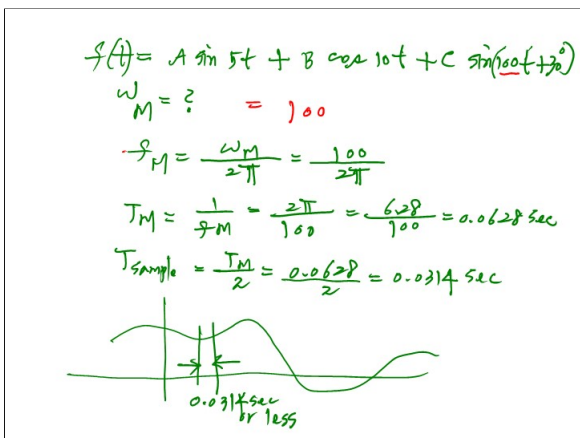 f(t) = A sin 5t + B cos 10t + C sin(100t+30°)
ω_M = ? = 100
f_M = ω_M/2π = 100/2π
T_M = 1/f_M = 2π/100 = 6.28/100 = 0.0628 sec
T_sample = T_M/2 = 0.0628/2 = 0.0314 sec
0.0314 sec
or less